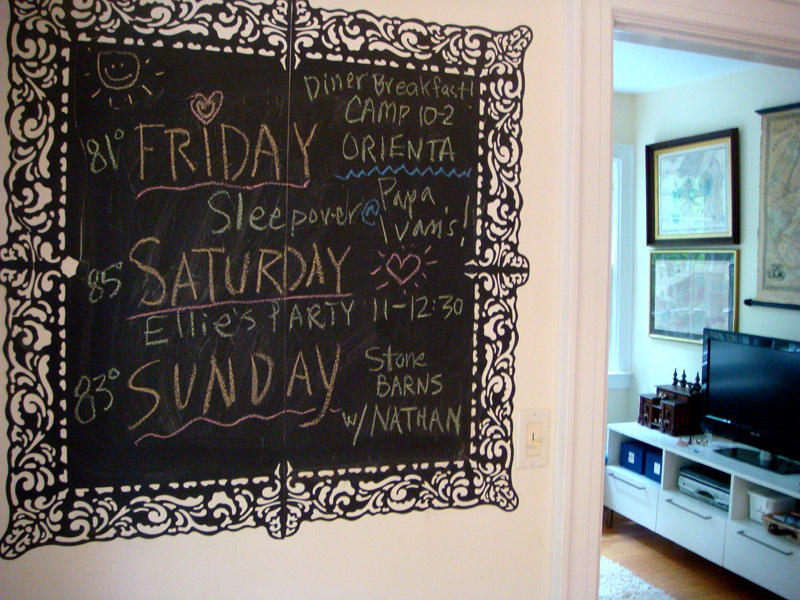 Diner Breakfast!
CAMP 10-2
81° FRIDAY ORIENTA
Sleepover @ Papa Ivan's!
85° SATURDAY
Ellie's PARTY 11-12:30
83° SUNDAY Stone
BARNS
w/NATHAN